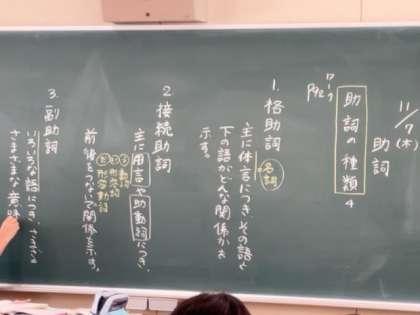 11/7(木)
助詞
ワーク
P92~
助詞の種類 4
1. 格助詞
名詞
主に体言につき、その語と
下の語がどんな関係かを
示す。
2 接続助詞
主に用言や助動詞につき、
動詞
形容詞
形容動詞
前後をつないで関係を示す。
3. 副助詞
いろいろな語につき、
さまざまな意味